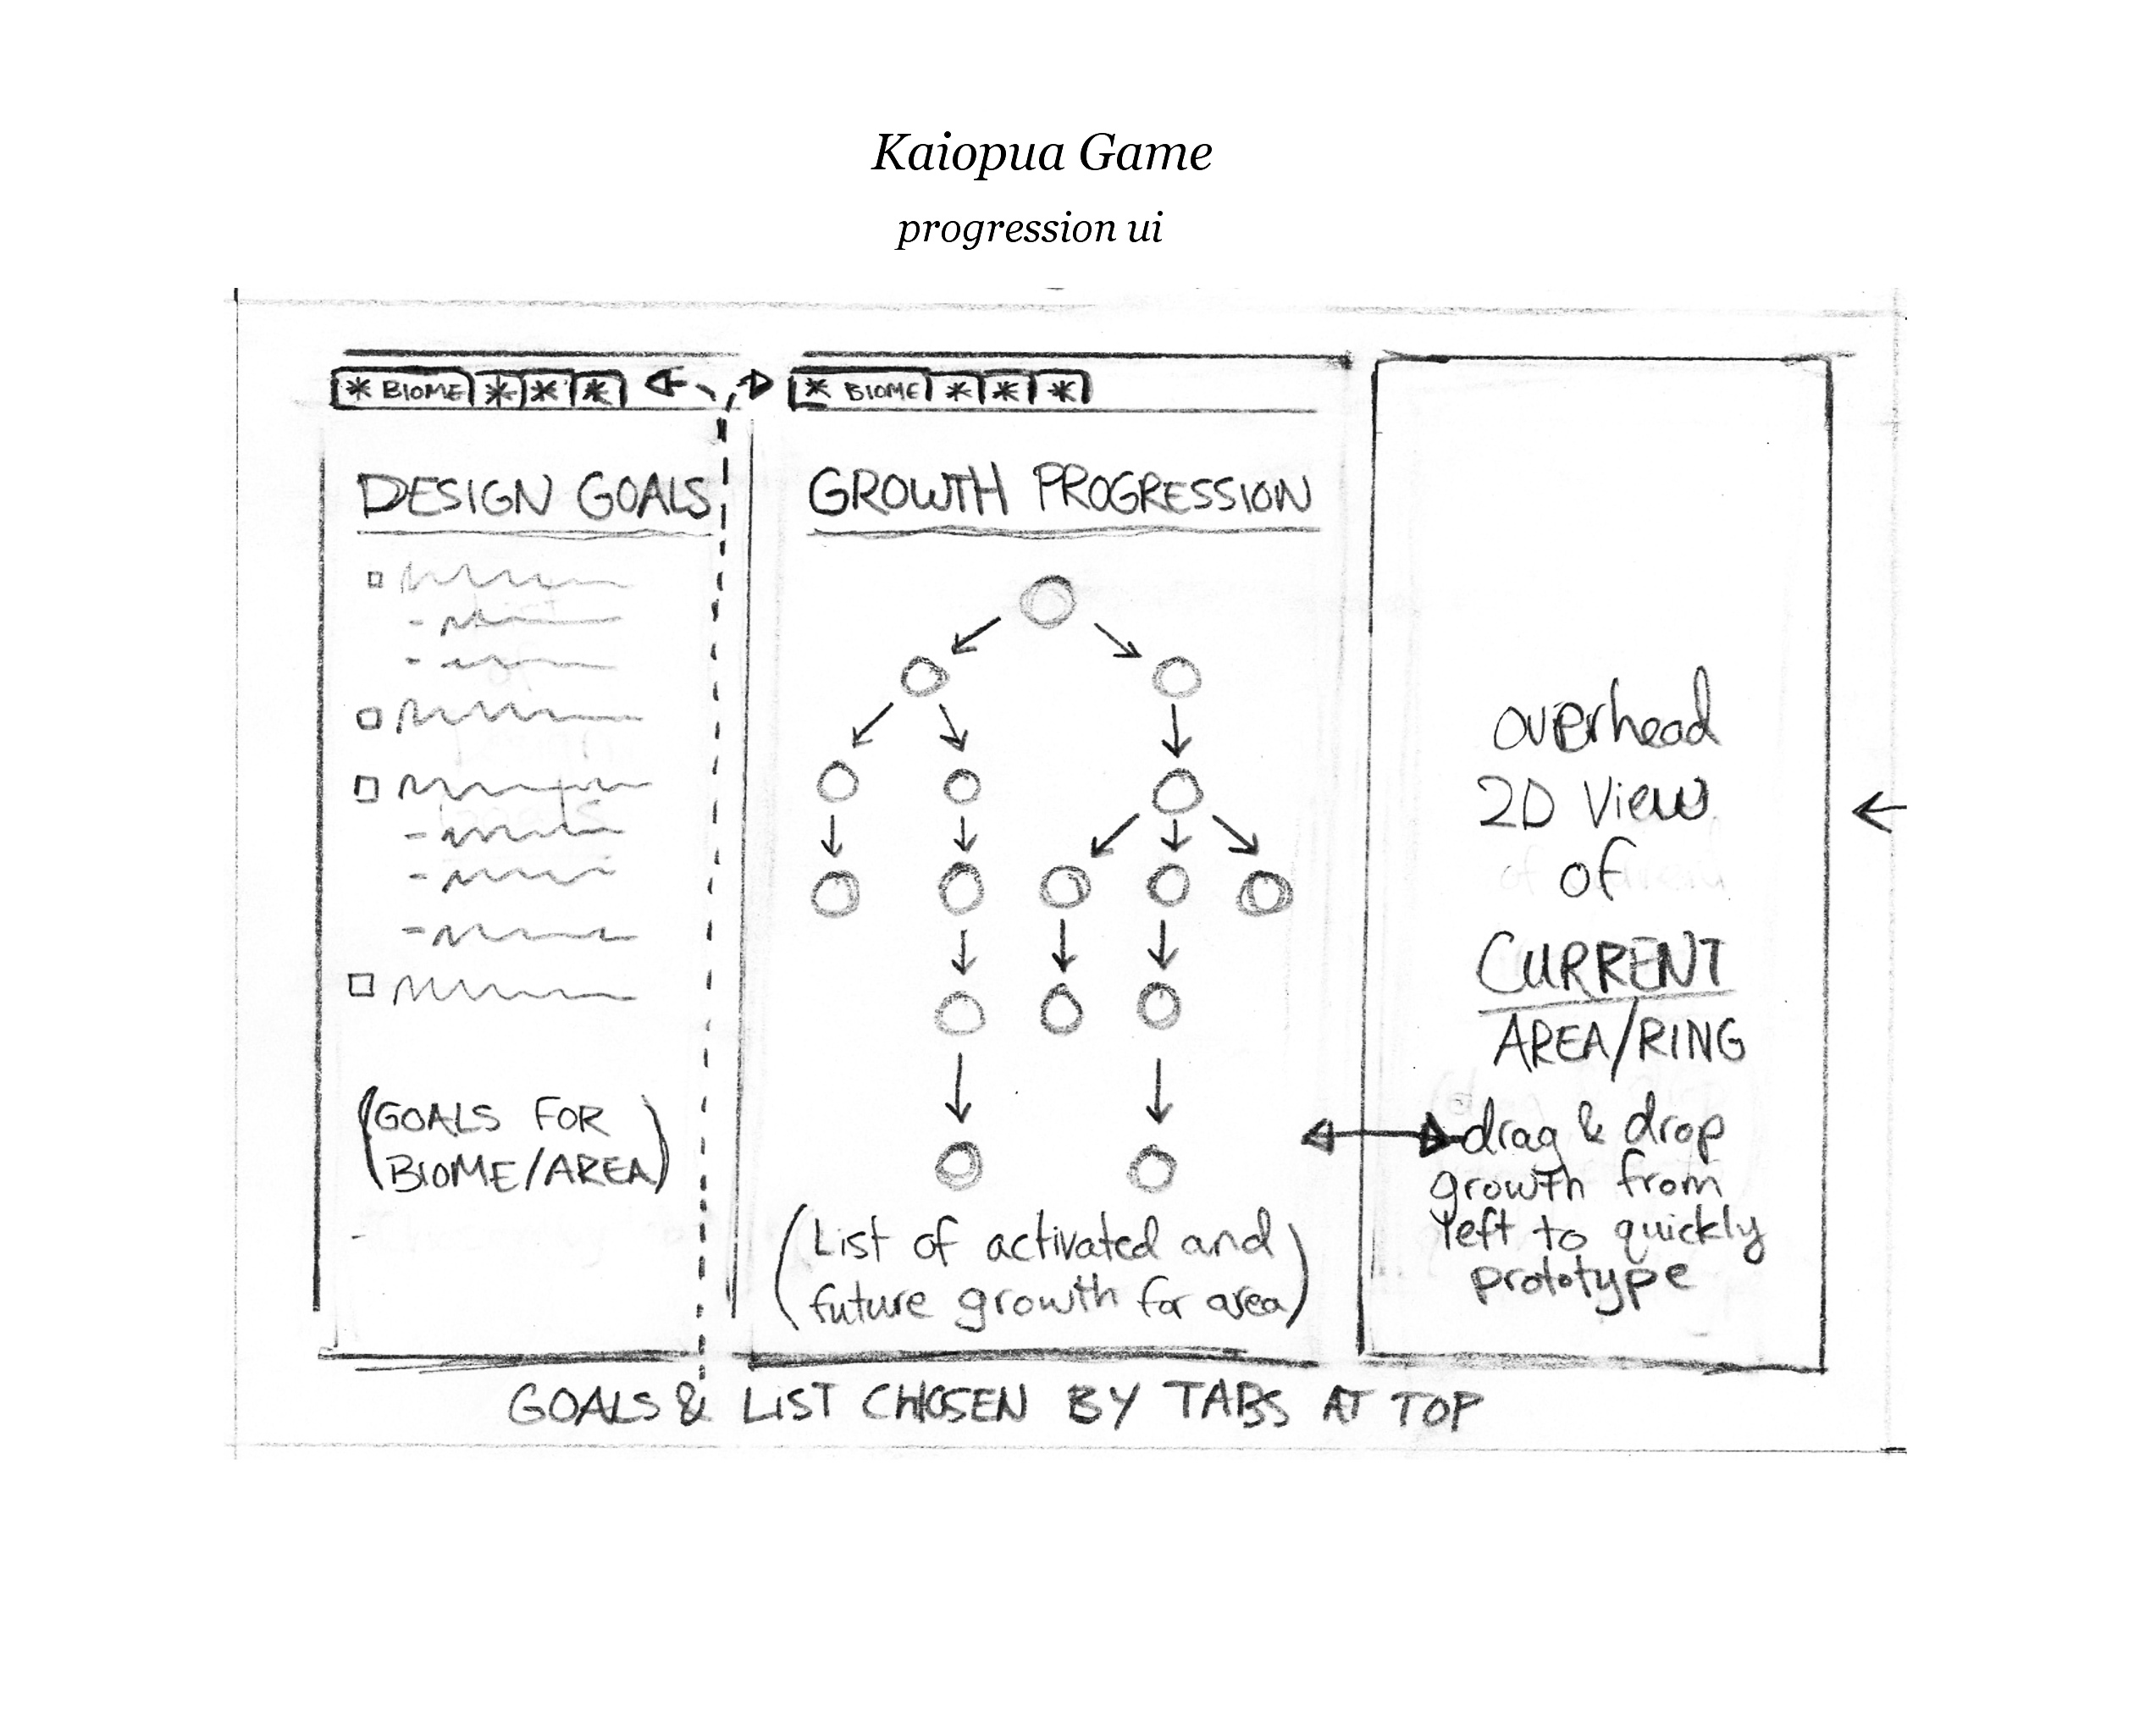 Kaiopua Game
progression ui
* BIOME * * *
* BIOME * * *
DESIGN GOALS
(GOALS FOR
BIOME/AREA)
GROWTH PROGRESSION
(List of activated and
future growth for area)
overhead
2D View
of
CURRENT
AREA/RING
drag & drop
growth from
left to quickly
prototype
GOALS & LIST CHOSEN BY TABS AT TOP